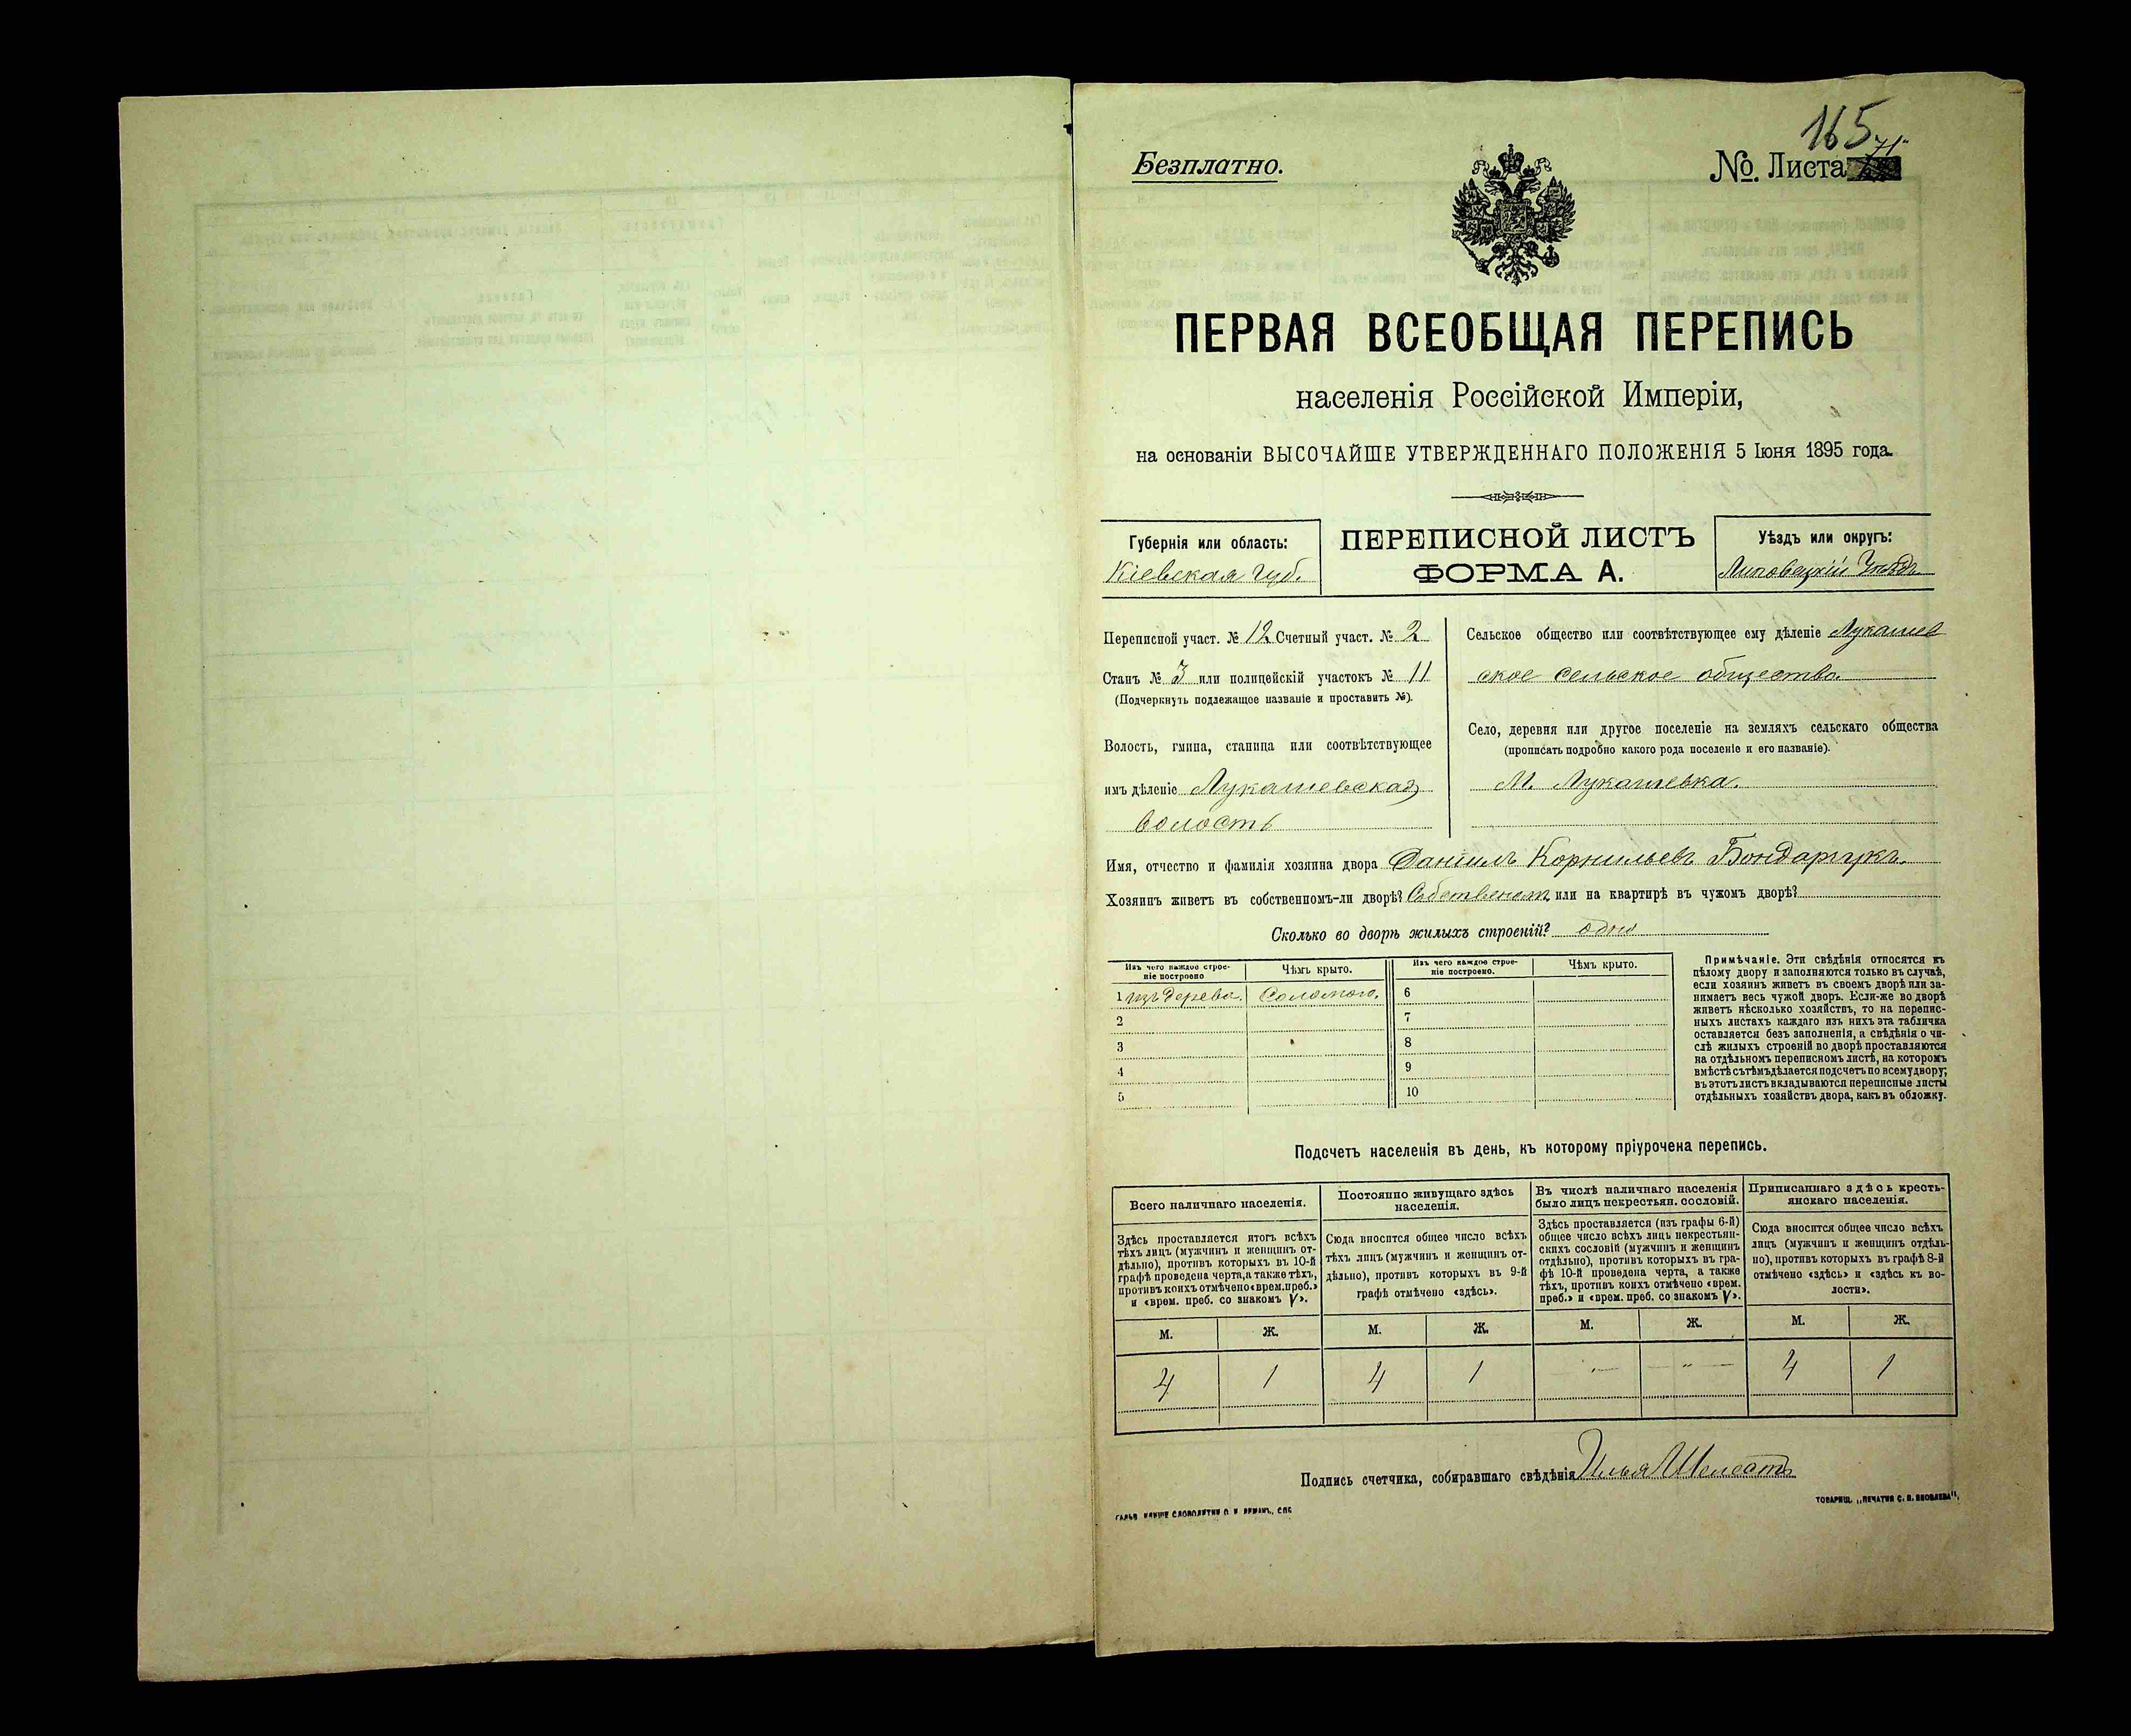 165
Безплатно.
№. Листа 71
ПЕРВАЯ ВСЕОБЩАЯ ПЕРЕПИСЬ
населенія Россійской Имперіи,
на основаніи ВЫСОЧАЙШЕ УТВЕРЖДЕННАГО ПОЛОЖЕНІЯ 5 Іюня 1895 года.
Губернія или область:
Кіевская губ.
ПЕРЕПИСНОЙ ЛИСТЪ
ФОРМА А.
Уѣздъ или округъ:
Липовецкій Уѣздъ
Переписной участ. № 12 Счетный участ. № 2
Станъ № 3 или полицейскій участокъ № 11
(Подчеркнуть подлежащее названіе и проставить №).
Волость, гмина, станица или соотвѣтствующее
имъ дѣленіе Лукашевская
волость
Сельское общество или соотвѣтствующее ему дѣленіе Лукашев
ское сельское общество.
Село, деревня или другое поселеніе на земляхъ сельскаго общества
(прописать подробно какого рода поселеніе и его названіе).
М. Лукашевка.
Имя, отчество и фамилія хозяина двора Даніилъ Корнильевъ Бондарчукъ.
Хозяинъ живетъ въ собственномъ-ли дворѣ? Собственом или на квартирѣ въ чужомъ дворѣ?
Сколько во дворѣ жилыхъ строеній? одно
Изъ чего каждое строе-
ніе построено
Чѣмъ крыто.
Изъ чего каждое строе-
ніе построено.
Чѣмъ крыто.
1 изъ дерева. Соломою. 6
2 7
3 8
4 9
5 10
Примѣчаніе. Эти свѣдѣнія относятся къ
цѣлому двору и заполняются только въ случаѣ,
если хозяинъ живетъ въ своемъ дворѣ или за-
нимаетъ весь чужой дворъ. Если-же во дворѣ
живетъ нѣсколько хозяйствъ, то на перепис-
ныхъ листахъ каждаго изъ нихъ эта табличка
оставляется безъ заполненія, а свѣдѣнія о чи-
слѣ жилыхъ строеній во дворѣ проставляются
на отдѣльномъ переписномъ листѣ, на которомъ
вмѣстѣ съ тѣмъ дѣлается подсчетъ по всему двору;
въ этотъ листъ вкладываются переписные листы
отдѣльныхъ хозяйствъ двора, какъ въ обложку.
Подсчетъ населенія въ день, къ которому пріурочена перепись.
Всего наличнаго населенія.
Здѣсь проставляется итогъ всѣхъ
тѣхъ лицъ (мужчинъ и женщинъ от-
дѣльно), противъ которыхъ въ 10-й
графѣ проведена черта, а также тѣхъ,
противъ коихъ отмѣчено «врем. преб.»
и «врем. преб. со знакомъ V».
Постоянно живущаго здѣсь
населенія.
Сюда вносится общее число всѣхъ
тѣхъ лицъ (мужчинъ и женщинъ от-
дѣльно), противъ которыхъ въ 9-й
графѣ отмѣчено «здѣсь».
Въ числѣ наличнаго населенія
было лицъ некрестьян. сословій.
Здѣсь проставляется (изъ графы 6-й)
общее число всѣхъ лицъ некрестьян-
скихъ сословій (мужчинъ и женщинъ
отдѣльно), противъ которыхъ въ гра-
фѣ 10-й проведена черта, а также
тѣхъ, противъ коихъ отмѣчено «врем.
преб.» и «врем. преб. со знакомъ V».
Приписаннаго здѣсь кресть-
янскаго населенія.
Сюда вносится общее число всѣхъ
лицъ (мужчинъ и женщинъ отдѣль-
но), противъ которыхъ въ графѣ 8-й
отмѣчено «здѣсь» и «здѣсь къ во-
лости».
М. Ж. М. Ж. М. Ж. М. Ж.
4 1 4 1 — „ — — „ — 4 1
Подпись счетчика, собиравшаго свѣдѣнія Илья Шелестъ
ТОВАРИЩ. „ПЕЧАТНЯ С. П. ЯКОВЛЕВА".